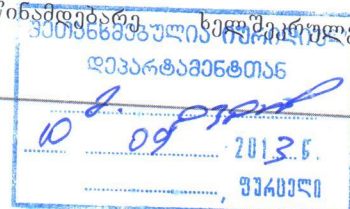 წინამდებარე ხელშეკრულე
შეთანხმებულია იურიდიულ
დეპარტამენტთან
10 09 2013 წ.
, ფურცელი